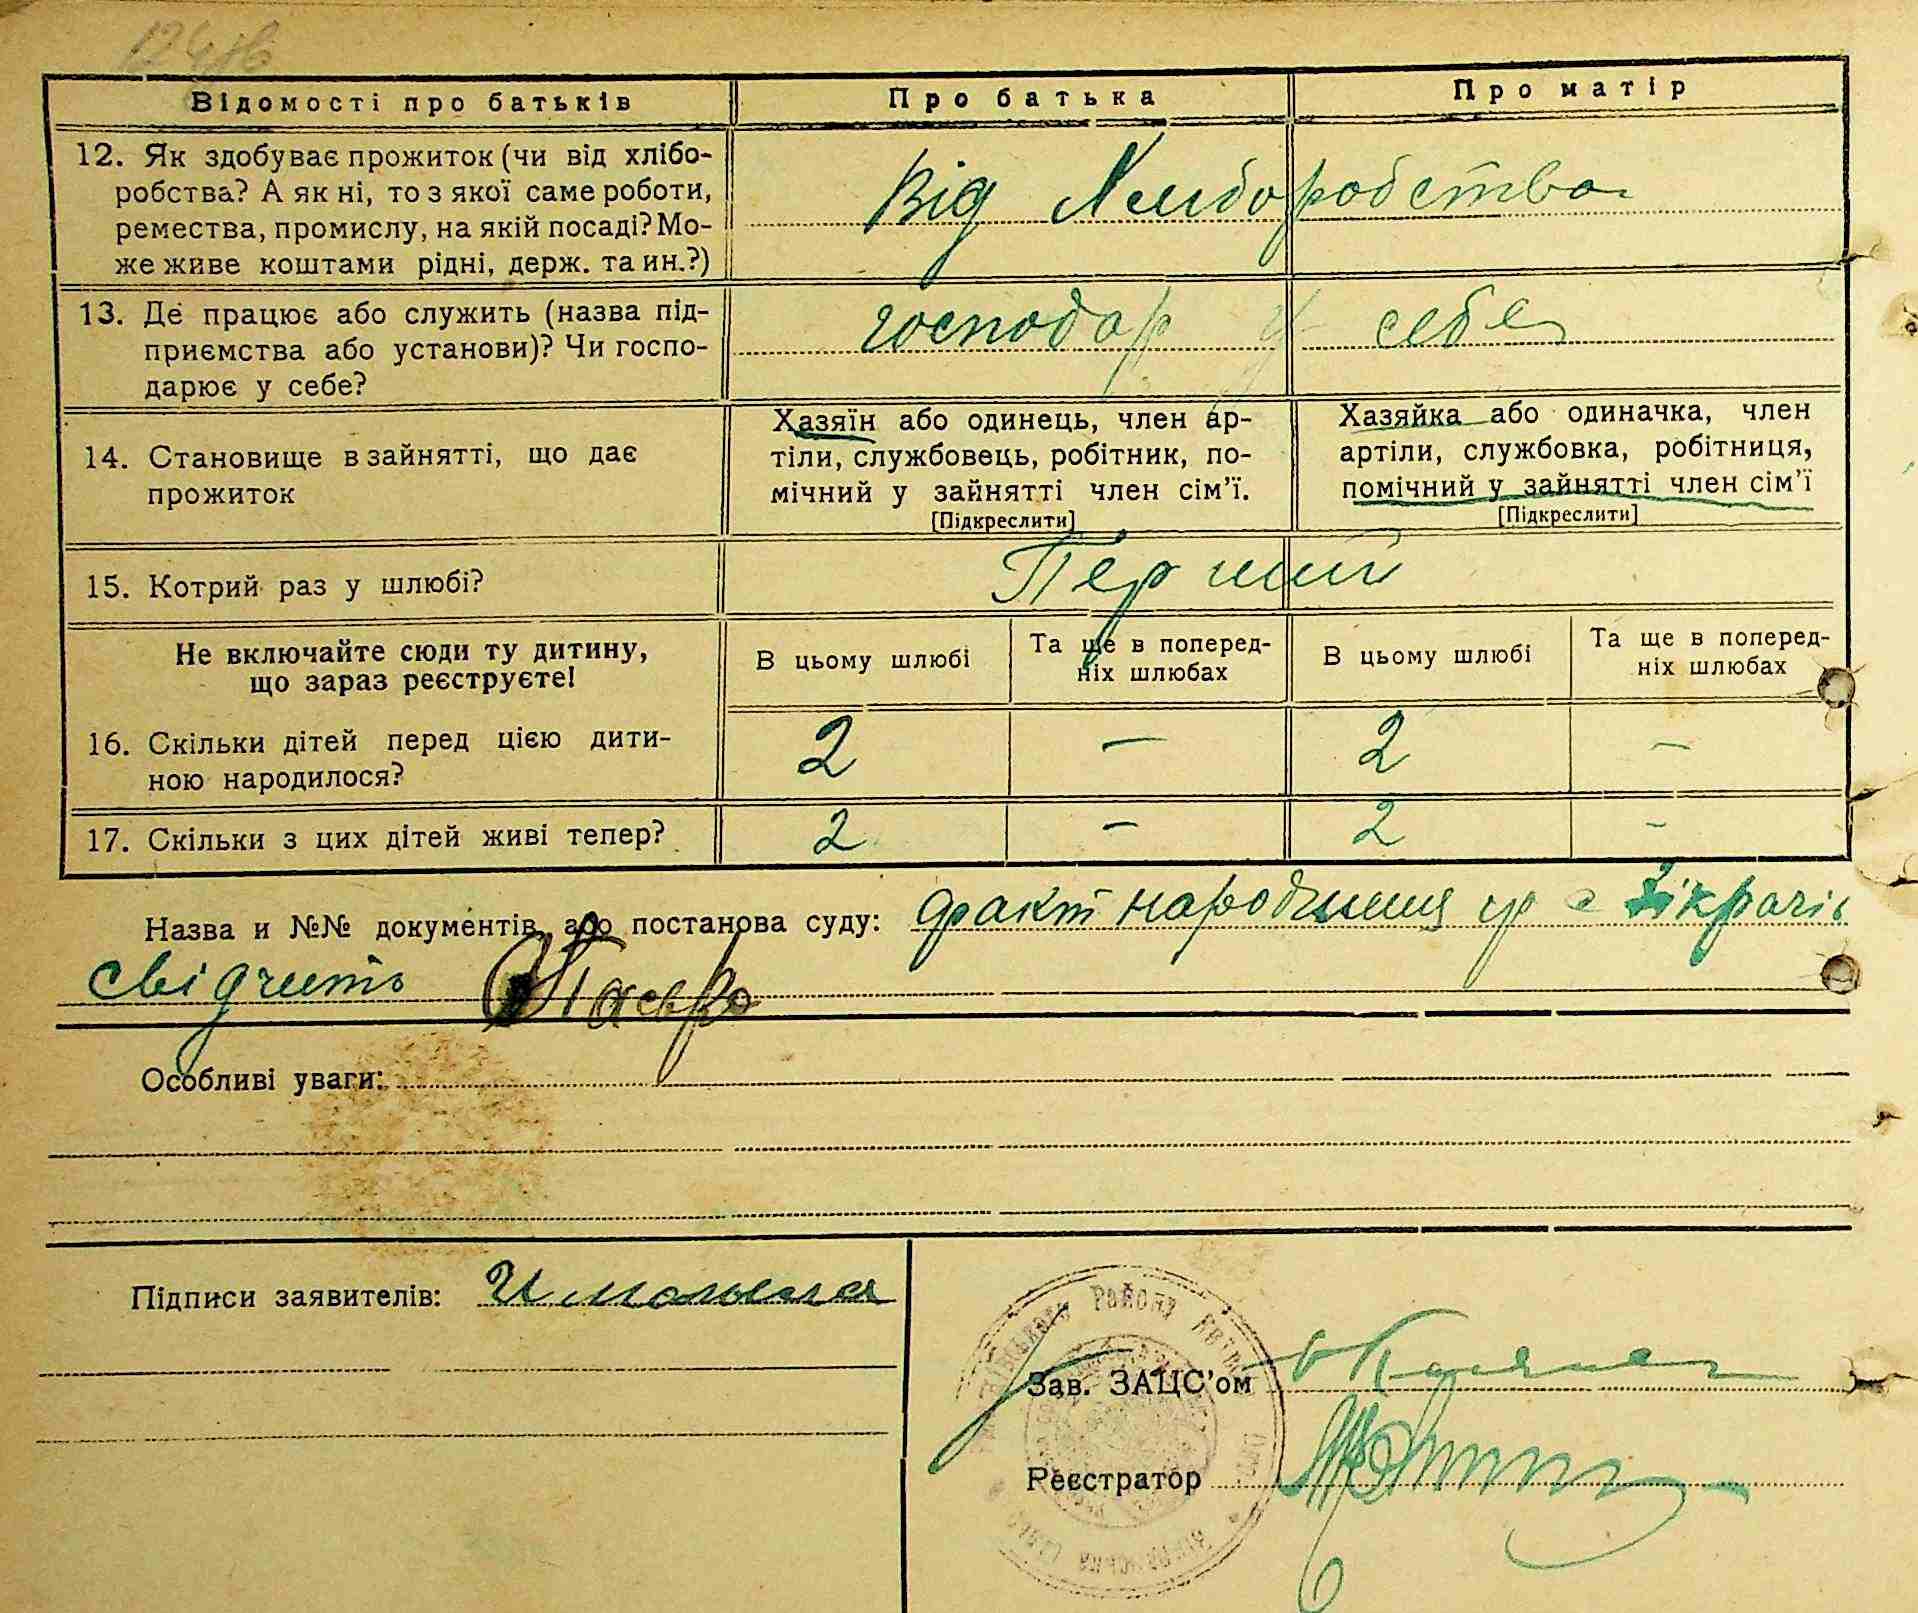 Відомості про батьків
Про батька
Про матір
12. Як здобуває прожиток (чи від хлібо-
робства? А як ні, то з якої саме роботи,
ремества, промислу, на якій посаді? Мо-
же живе коштами рідні, держ. та ин.?)
Від Хліборобства
13. Де працює або служить (назва під-
приємства або установи)? Чи госпо-
дарює у себе?
господар у себе
14. Становище в зайнятті, що дає
прожиток
Хазяїн або одинець, член ар-
тіли, службовець, робітник, по-
мічний у зайнятті член сім'ї.
[Підкреслити]
Хазяйка або одиначка, член
артіли, службовка, робітниця,
помічний у зайнятті член сім'ї
[Підкреслити]
15. Котрий раз у шлюбі?
Перший
Не включайте сюди ту дитину,
що зараз реєструєте!
В цьому шлюбі
Та ще в поперед-
ніх шлюбах
В цьому шлюбі
Та ще в поперед-
ніх шлюбах
16. Скільки дітей перед цією дити-
ною народилося?
2 — 2 —
17. Скільки з цих дітей живі тепер?
2 — 2 -
Назва и №№ документів, або постанова суду: факт народження у с
свідчить
Особливі уваги:
Підписи заявителів:
Зав. ЗАЦС'ом
Реєстратор
Району